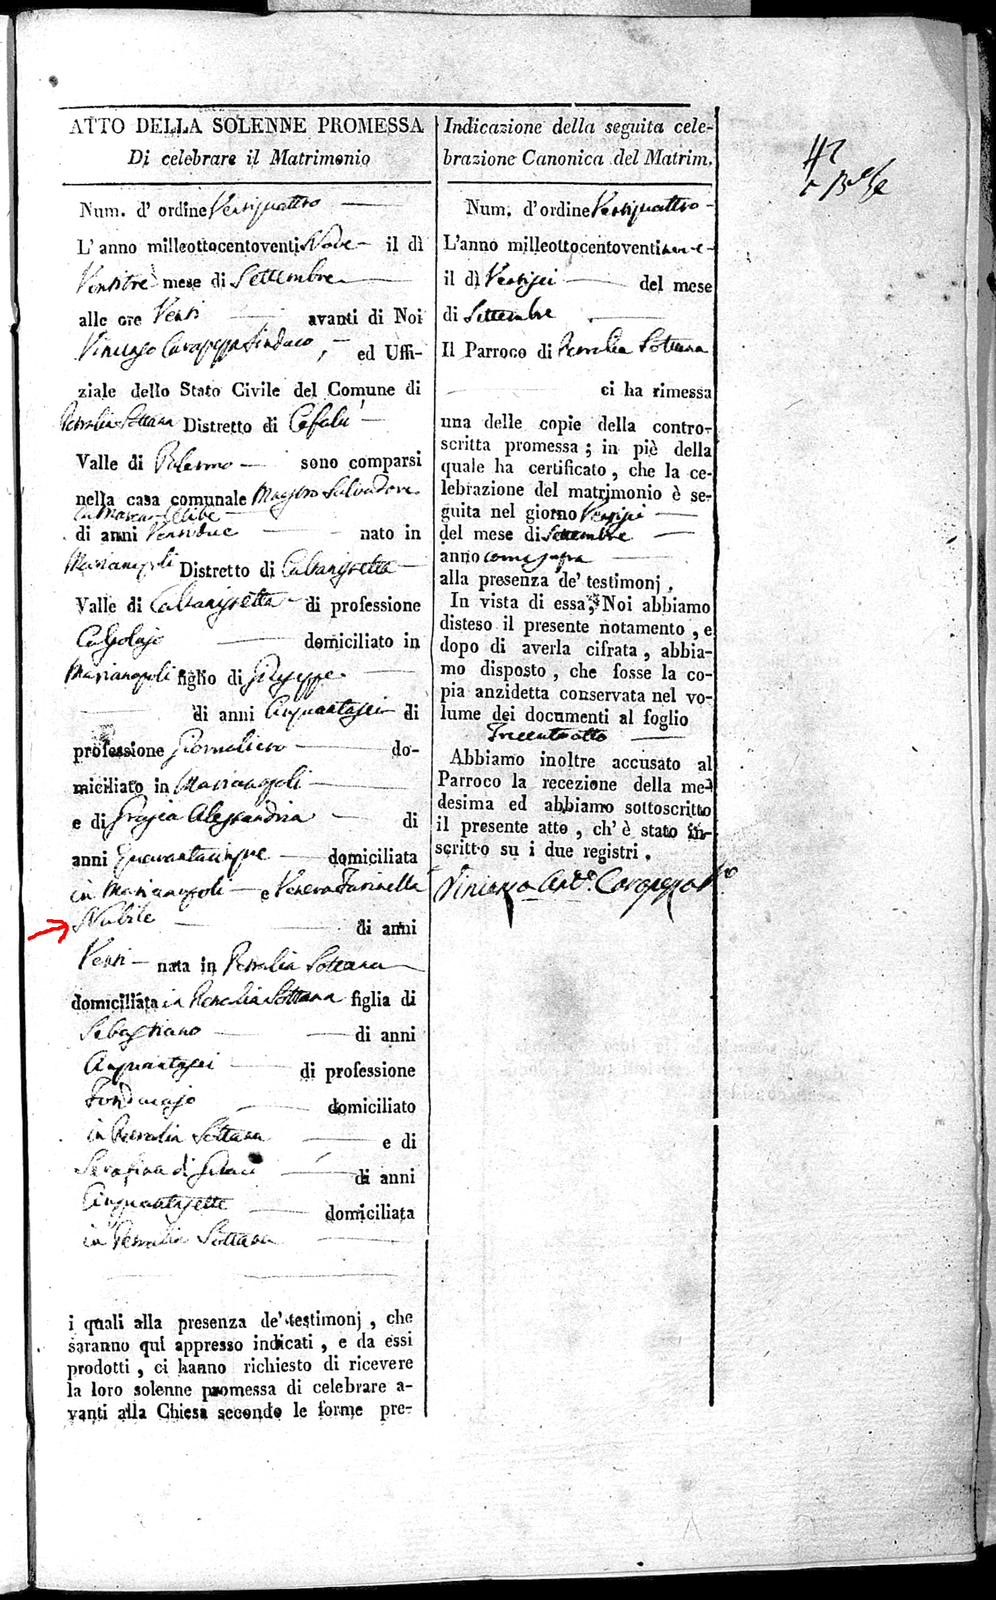 ATTO DELLA SOLENNE PROMESSA
Di celebrare il Matrimonio
Num. d' ordine Ventiquattro
L' anno milleottocentoventi Nove il dì
Ventitre mese di Settembre
alle ore Venti avanti di Noi
Vincenzo Carapezza Sindaco, ed Uffi-
ziale dello Stato Civile del Comune di
Petralia Sottana Distretto di Cefalù
Valle di Palermo sono comparsi
nella casa comunale Maestro Salvadore
celibe
di anni Ventidue nato in
Marianopoli Distretto di Caltanissetta
Valle di Caltanissetta di professione
Calzolajo domiciliato in
Marianopoli figlio di Giuseppe
di anni Cinquantasei di
professione Giornaliero do-
miciliato in Marianopoli
e di Grazia Alessandria di
anni Quarantacinque domiciliata
in Marianopoli e Venera Farinella
Nubile di anni
Venti nata in Petralia Sottana
domiciliata in Petralia Sottana figlia di
Sebastiano di anni
Cinquantasei di professione
Fondacajo domiciliato
in Petralia Sottana e di
Serafina di di anni
Cinquantasette domiciliata
in Petralia Sottana
i quali alla presenza de' testimonj, che
saranno qui appresso indicati, e da essi
prodotti, ci hanno richiesto di ricevere
la loro solenne promessa di celebrare a-
vanti alla Chiesa secondo le forme pre-
Indicazione della seguita cele-
brazione Canonica del Matrim.
Num. d'ordine Ventiquattro
L'anno milleottocentoventi nove
il dì Ventisei del mese
di Settembre
Il Parroco di Petralia Sottana
ci ha rimessa
una delle copie della contro-
scritta promessa; in piè della
quale ha certificato, che la ce-
lebrazione del matrimonio è se-
guita nel giorno Ventisei
del mese di Settembre
anno come sopra
alla presenza de' testimonj.
In vista di essa, Noi abbiamo
disteso il presente notamento, e
dopo di averla cifrata, abbia-
mo disposto, che fosse la co-
pia anzidetta conservata nel vo-
lume dei documenti al foglio
Trecentotto
Abbiamo inoltre accusato al
Parroco la recezione della me-
desima ed abbiamo sottoscritto
il presente atto, ch' è stato in-
scritto su i due registri.
Vincenzo Ant.º Carapezza